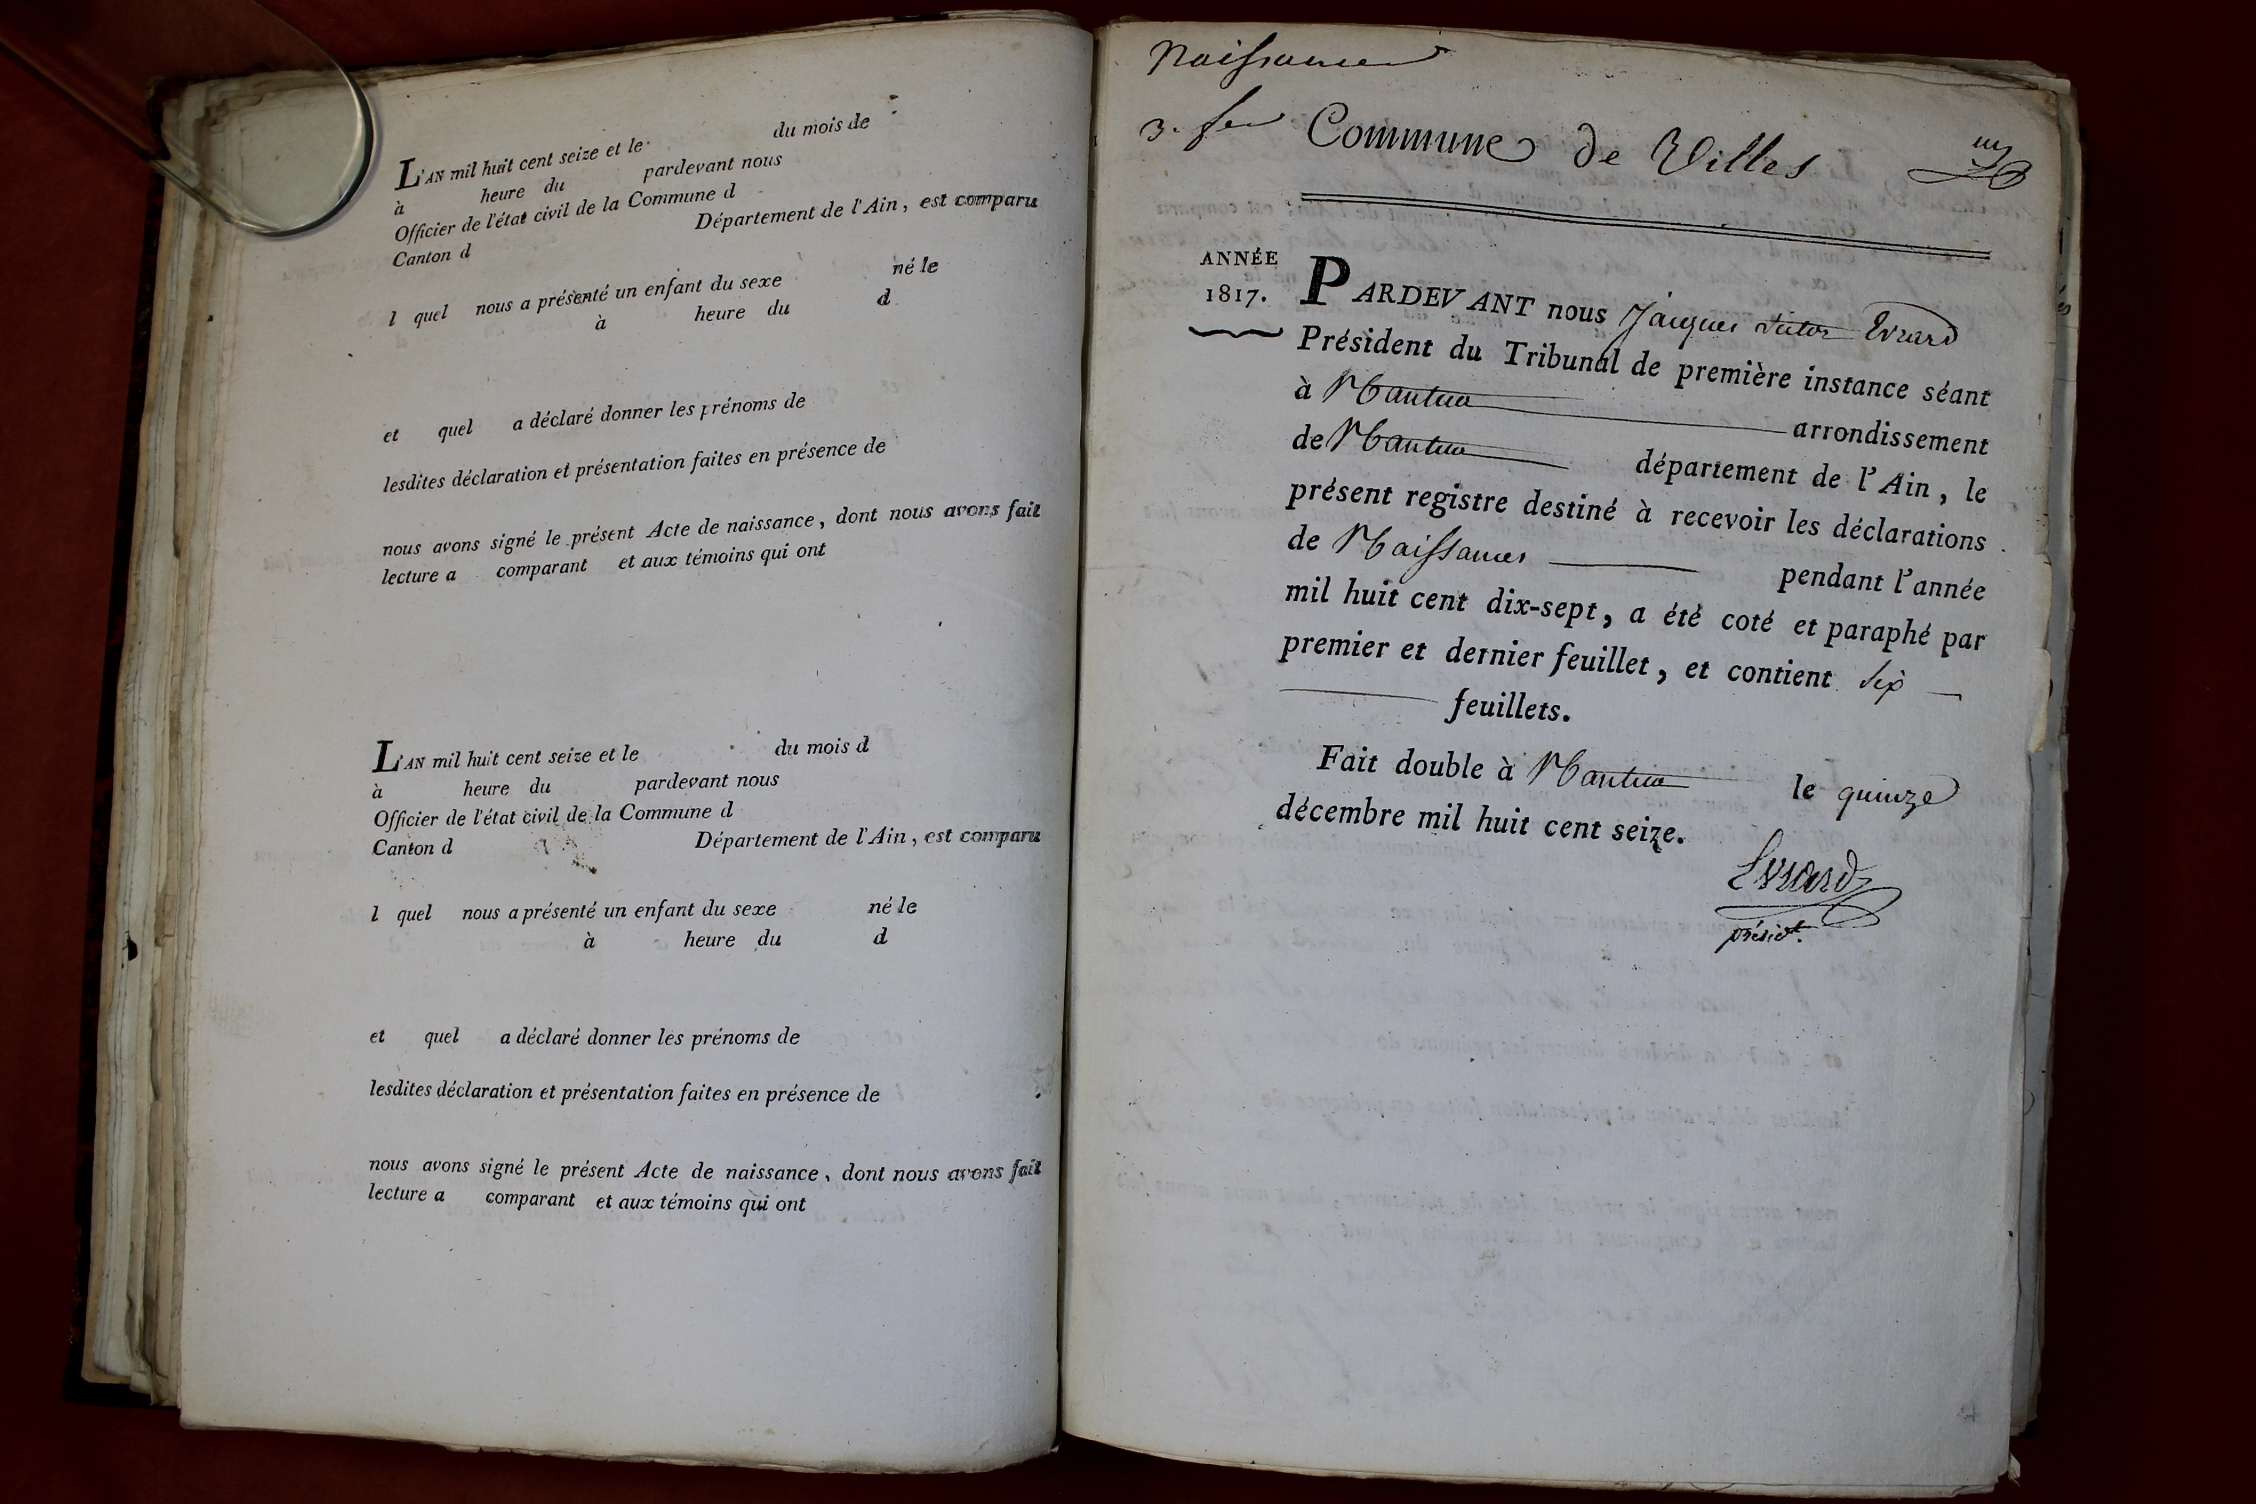 L'AN mil huit cent seize et le du mois de
à heure du pardevant nous
Officier de l'état civil de la Commune d
Canton d Département de l'Ain, est comparu
l quel nous a présenté un enfant du sexe né le
à heure du d
et quel a déclaré donner les prénoms de
lesdites déclaration et présentation faites en présence de
nous avons signé le présent Acte de naissance, dont nous avons fait
lecture a comparant et aux témoins qui ont
L'AN mil huit cent seize et le du mois d
à heure du pardevant nous
Officier de l'état civil de la Commune d
Canton d Département de l'Ain, est comparu
l quel nous a présenté un enfant du sexe né le
à heure du d
et quel a déclaré donner les prénoms de
lesdites déclaration et présentation faites en présence de
nous avons signé le présent Acte de naissance, dont nous avons fait
lecture a comparant et aux témoins qui ont
Naissances
Commune de Villes
ANNÉE
1817.
PARDEVANT nous Jacques Victor Evrard
Président du Tribunal de première instance séant
à Nantua arrondissement
de Nantua département de l'Ain, le
présent registre destiné à recevoir les déclarations
de Naissances pendant l'année
mil huit cent dix-sept, a été coté et paraphé par
premier et dernier feuillet, et contient six
feuillets.
Fait double à Nantua le quinze
décembre mil huit cent seize.
Evrard
présidt.